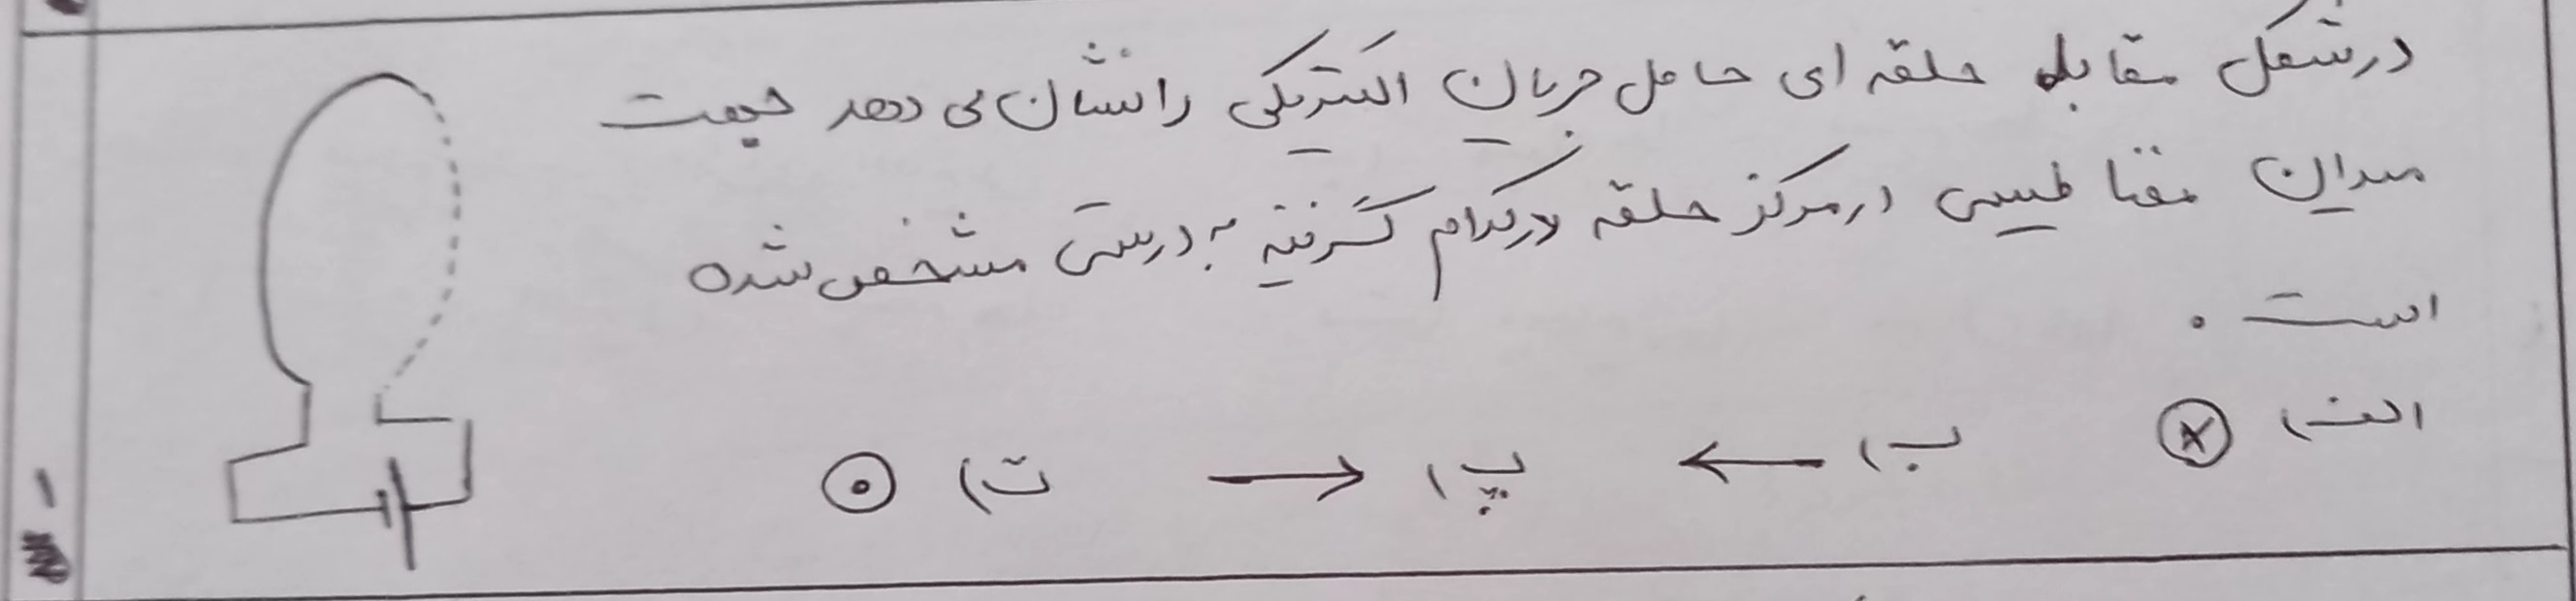 در شکل مقابل حلقه ای حامل جریان الکتریکی را نشان می دهد جهت
میدان مغناطیسی در مرکز حلقه در کدام گزینه به درستی مشخص شده
است .
الف) ⊗ ب) ← پ) → ت) ⊙
۱-